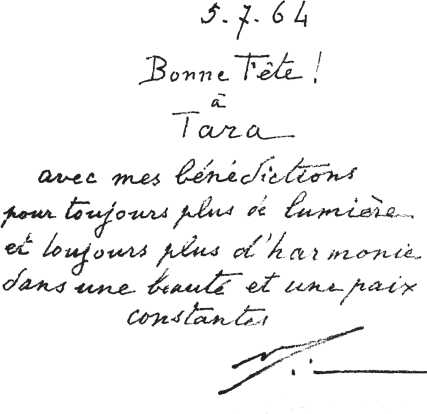 5.7.64
Bonne Fête!
à
Tara
avec mes bénédictions
pour toujours plus de lumière
et toujours plus d'harmonie
dans une beauté et une paix
constantes